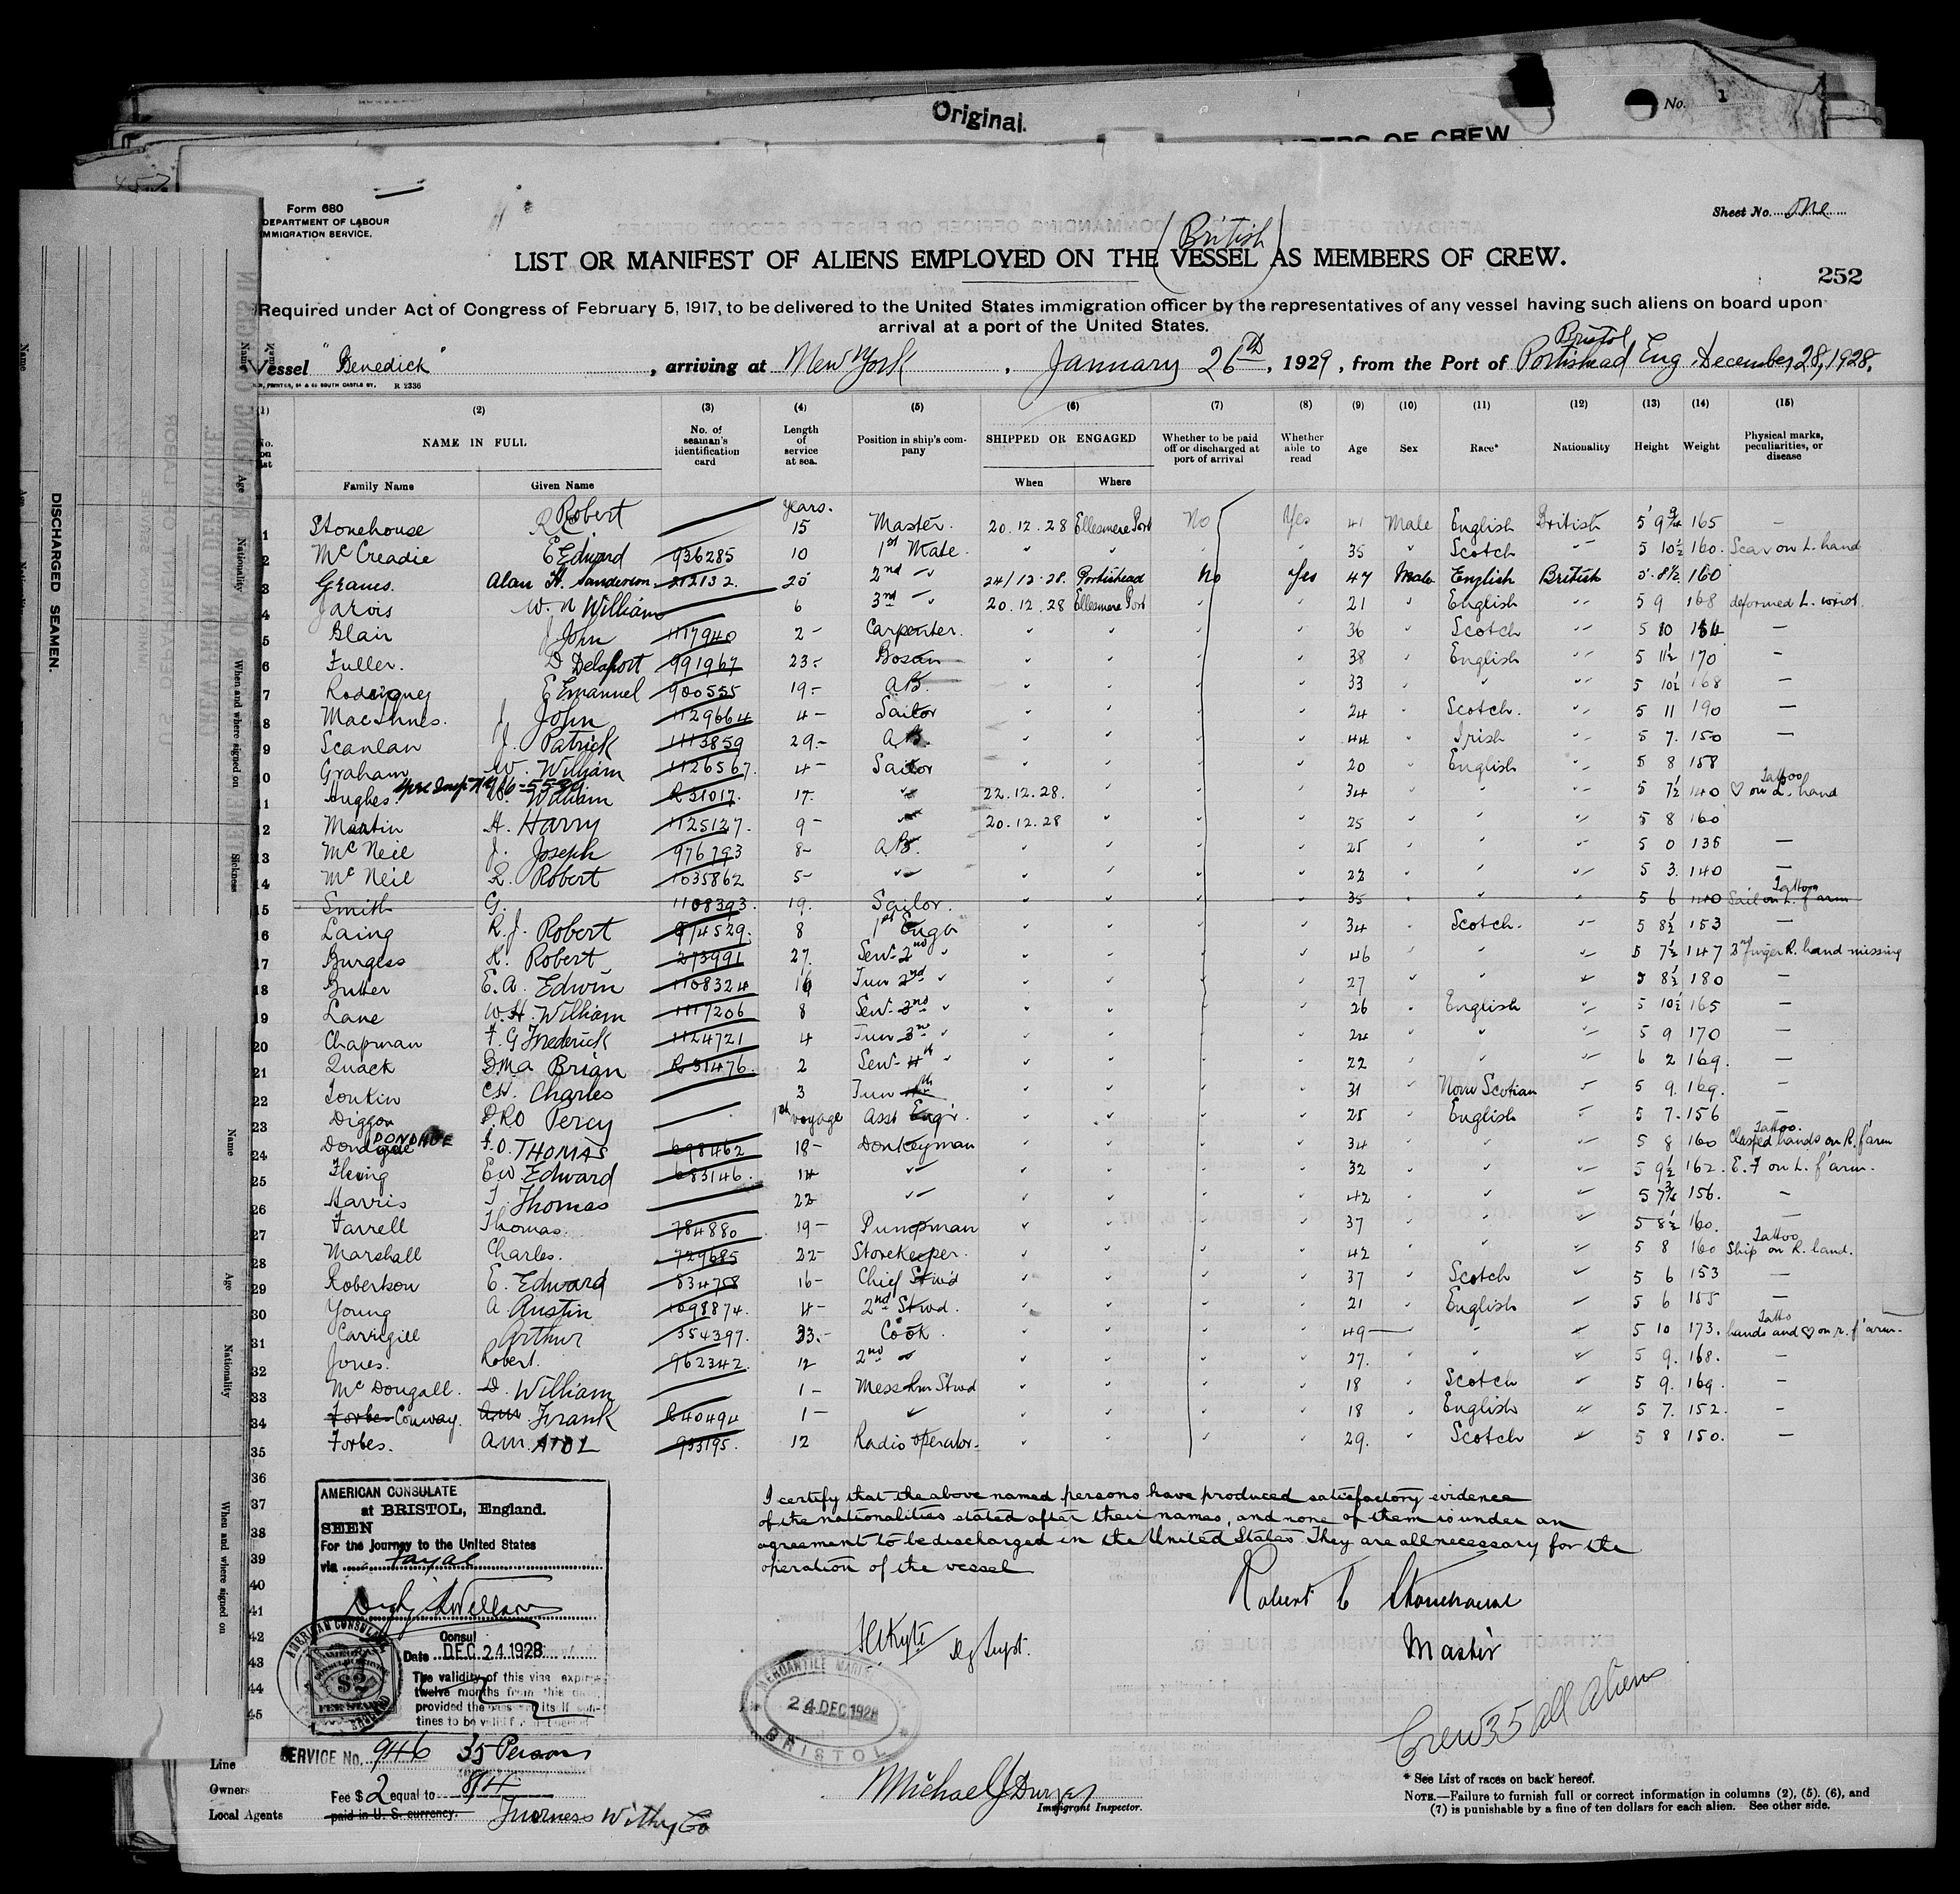 Original.
No. 1
MEMBERS OF CREW
Form 680
DEPARTMENT OF LABOUR
IMMIGRATION SERVICE.
Sheet No. One
(British)
LIST OR MANIFEST OF ALIENS EMPLOYED ON THE VESSEL AS MEMBERS OF CREW.
252
Required under Act of Congress of February 5, 1917, to be delivered to the United States immigration officer by the representatives of any vessel having such aliens on board upon
arrival at a port of the United States.
Vessel "Benedick", arriving at New York, January 26th, 1929, from the Port of Bristol Portishead Eng. December 28, 1928.
(1) (2) (3) (4) (5) (6) (7) (8) (9) (10) (11) (12) (13) (14) (15)
No. on list NAME IN FULL No. of seaman's identification card Length of service at sea. Position in ship's company SHIPPED OR ENGAGED Whether to be paid off or discharged at port of arrival Whether able to read Age Sex Race* Nationality Height Weight Physical marks, peculiarities, or disease
Family Name Given Name When Where
years.
1 Stonehouse R C Robert 15 Master. 20.12.28 Ellesmere Port No Yes 41 Male English British 5 9 165 –
2 McCreadie E Edward 936285 10 1st Mate. " " " " 35 " Scotch " 5 10½ 160. Scar on L. hand
3 Graves. Alan H. Sanderson 212132. 25 2nd " 24/12.28. Portishead No Yes 47 Male English British 5 8½ 160
4 Jarvis W. N William 6 3rd " 20.12.28 Ellesmere Port " " 21 " English " 5 9 168 deformed L. wrist.
5 Blair J John 1117940 2 – Carpenter. " " " " 36 " Scotch " 5 10 184 –
6 Fuller. D Delaport 991967 23 – Bosun " " " " 38 " English " 5 11½ 170 –
7 Rodriguez E Emanuel 900555 19 – AB. " " " " 33 " " " 5 10½ 168 –
8 MacInnes. J John 1129664 4 – Sailor " " " " 24 " Scotch. " 5 11 190 –
9 Scanlan J. Patrick 1113859 29 – AB. " " " " 44 " Irish " 5 7. 150 –
10 Graham W. William 1126567. 4 – Sailor " " " " 20 " English " 5 8 158
11 Hughes W. William R51017. 17. " 22.12.28. " " " 34 " " " 5 7½ 140 Tattoo ♡ on L. hand
12 Martin H. Harry 1125127. 9 – " 20.12.28 " " " 25 " " " 5 8 160
13 McNeil J. Joseph 976793 8 – AB. " " " " 25 " " " 5 0 135 –
14 McNeil R. Robert 1035862 5 – " " " " " 22 " " " 5 3. 140 –
15 Smith G. 1108393. 19. Sailor. 35 " " " 5 6 140 Tattoo Sail on L. f'arm
16 Laing R. J. Robert 974529. 8 1st Engr " " " " 34 " Scotch. " 5 8½ 153 –
17 Burgess R. Robert 273991 27. Senr 2nd " " " " " 46 " " " 5 7½ 147 2nd finger R. hand missing
18 E. A. Edwin 1108324 16 Junr 2nd " " " " " 27 " " " 5 8½ 180 –
19 Lane W. H. William 1117206 8 Senr 3rd " " " " " 26 " English " 5 10½ 165 –
20 Chapman F. G Frederick 1124721 4 Junr 3rd " " " " " 24 " " " 5 9 170 –
21 Quack B. Ma Brian R51476. 2 Senr 4th " " " " " 22 " " " 6 2 169. –
22 Tonkin C. W. Charles 3 Junr 4th " " " " 31 " Nova Scotian " 5 9. 169. –
23 Diggon P. RO Percy 1st voyage Asst Engr. " " " " 25 " English " 5 7. 156 –
24 DONOHUE T. O. THOMAS 698462 18 – Donkeyman " " " " 34 " " " 5 8 160 Tattoo. Clasped hands on R. f'arm
25 E W Edward 683146. 14 " " " " " 32 " " " 5 9½ 162. E. F on L. f'arm.
26 Harris T. Thomas 22 " " " " " 42 " " " 5 7¾ 156. –
27 Farrell Thomas. 784880 19 – Pumpman " " " " 37 " " " 5 8½ 160. –
28 Marshall Charles. 729685 22 – Storekeeper. " " " " 42 " " " 5 8 160 Tattoo Ship on R. hand.
29 Robertson E. Edward 834758 16 – Chief Stwd " " " " 37 " Scotch " 5 6 153 –
30 Young A. Austin 1098874. 4 – 2nd Stwd. " " " " 21 " English " 5 6 155 –
31 Carvigill Arthur 354397. 33. – Cook. " " " " 49 " " 5 10 173. Tatto hands and ♡ on r. f'arm.
32 Jones. Robert. 962342. 12 2nd " " " " " 27. " " " 5 9. 168. –
33 McDougall. D. William 1 – Mess Rm Stwd " " " " 18 " Scotch " 5 9. 169. –
34 Forbes Conway. A.M. Frank R40494 1 – " " " " " 18 " English " 5 7. 152. –
35 Forbes. A.M. 12 Radio operator. " " " " 29. " Scotch " 5 8 150. –
36
37
38
39
40
41
42
43
44
45
AMERICAN CONSULATE
at BRISTOL, England.
SEEN
For the Journey to the United States
via Fayal
Consul
Date DEC 24 1928
The validity of this visa expires
twelve months from this date,
provided the
tines to be valid for
AMERICAN CONSULATE
$2
FEE STAMP
I certify that the above named persons have produced satisfactory evidence
of the nationalities stated after their names, and none of them is under an
agreement to be discharged in the United States. They are all necessary for the
operation of the vessel
Robert C Stonehouse
Master
Supt.
MERCANTILE MARINE
24 DEC 1928
BRISTOL
Crew 35 all aliens
SERVICE No. 946 35 Persons
Fee $ 2 equal to 8/4
paid in U. S. currency.
Line
Owners
Local Agents Furness Withy Co
Michael J Dwyer
Immigrant Inspector.
* See List of races on back hereof.
NOTE.—Failure to furnish full or correct information in columns (2), (5), (6), and
(7) is punishable by a fine of ten dollars for each alien. See other side.
DISCHARGED SEAMEN.
Name
Age
Nationality
When and where signed on
Sickness
Name
Age
Nationality
When and where signed on